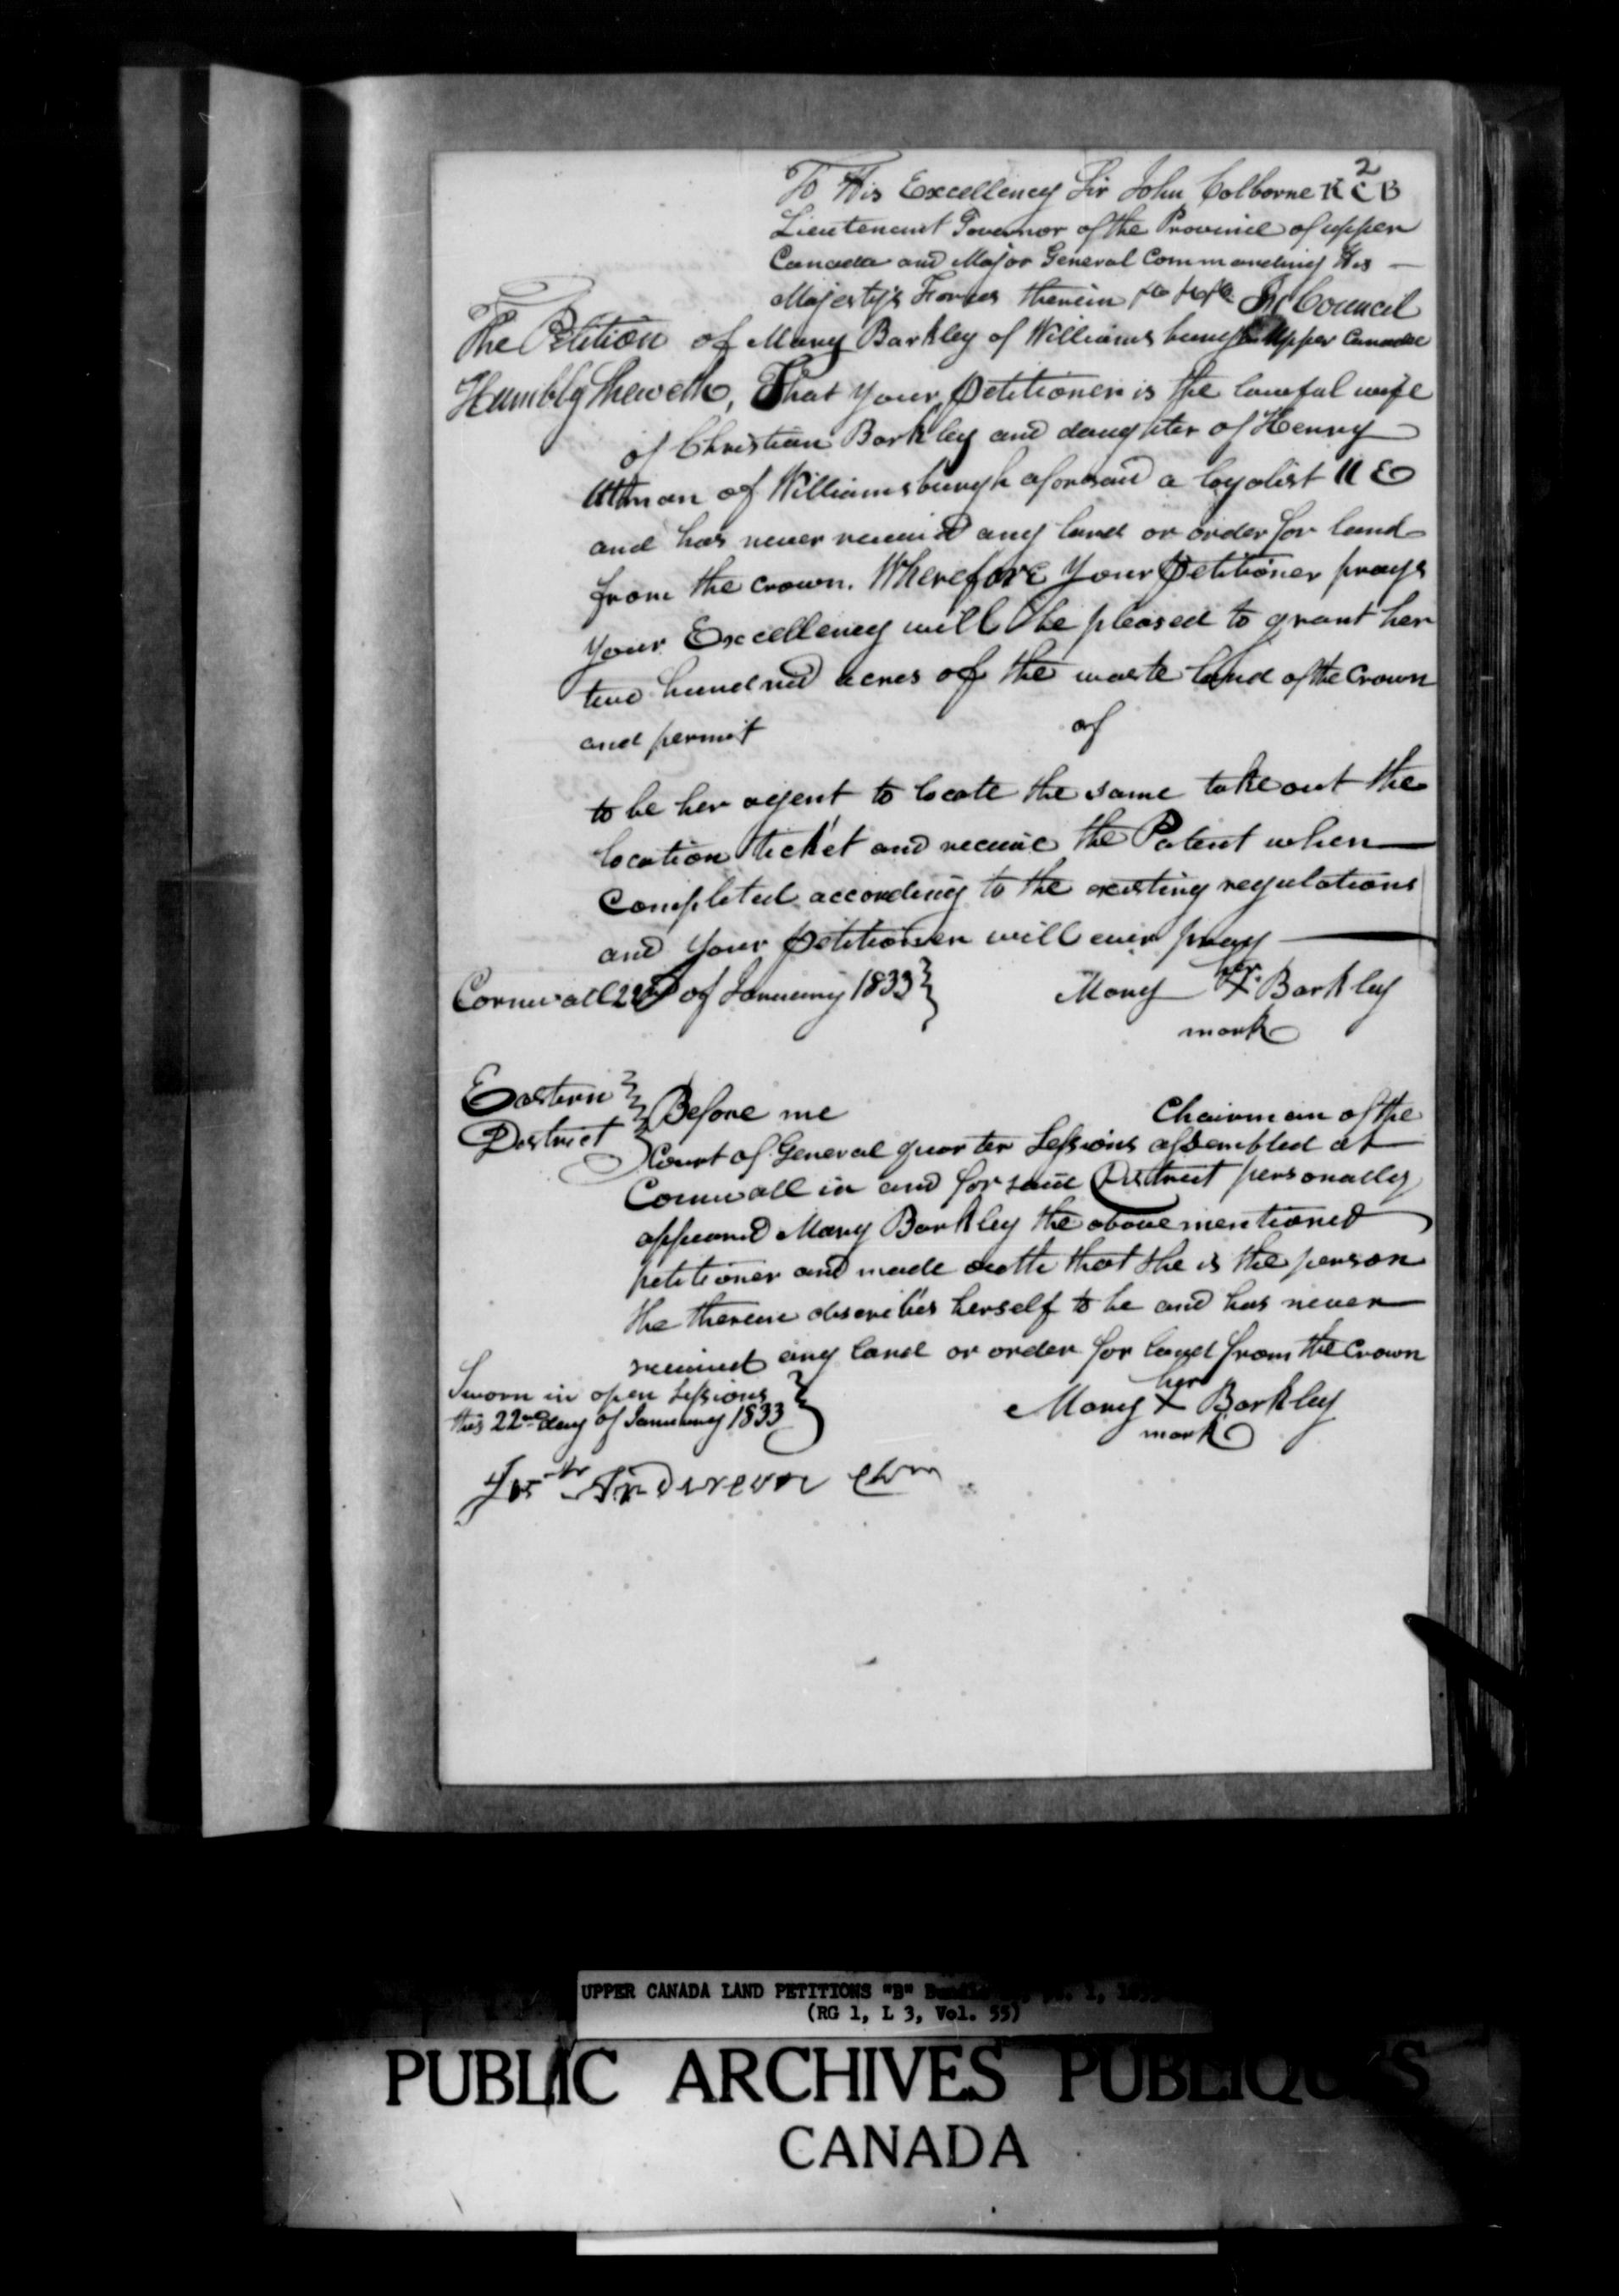 2
To His Excellency Sir John Colborne K C B
Lieutenant Governor of the Province of upper
Canada and Major General Commanding His —
Majesty's Forces therein &c &c &c In Council
The Petition of Mary Barkley of Williamsburgh Upper Canada
Humbly Sheweth, That your petitioner is the lawful wife
of Christian Barkley and daughter of Henry
of Williamsburgh aforesaid a loyalist U E
and has never received any land or order for land
from the crown. Wherefore your petitioner prays
your Excellency will be pleased to grant her
two hundred acres of the waste land of the Crown
and permit of
to be her agent to locate the same take out the
location ticket and receive the Patent when —
Completed according to the existing regulations
and your petitioner will ever pray —
Cornwall 22d of January 1833 } Mary her X Barkley
mark
Eastern }
District } Before me Chairman of the
Court of General quarter Sessions assembled at
Cornwall in and for said District personally
appeared Mary Barkley the above mentioned
petitioner and made oath that she is the person
she therein describes herself to be and has never
received any land or order for land from the Crown
Sworn in open Sessions }
this 22nd day of January 1833 } Mary her X Barkley
mark
Anderson Chm
UPPER CANADA LAND PETITIONS "B"
(RG 1, L 3, Vol. 55)
PUBLIC ARCHIVES PUBLIQUES
CANADA